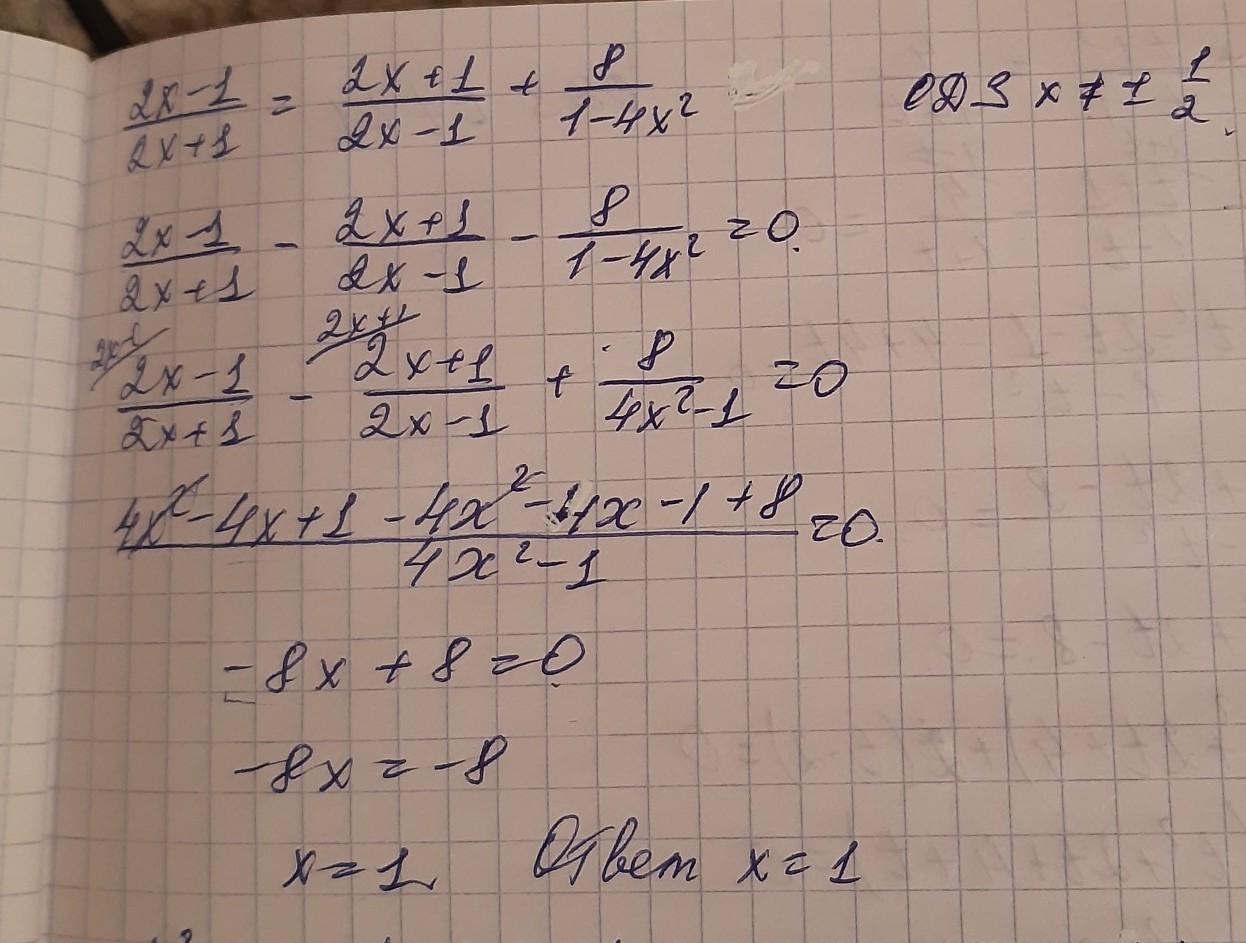 (2x-1)/(2x+1) = (2x+1)/(2x-1) + 8/(1-4x²) ОДЗ x ≠ ± 1/2
(2x-1)/(2x+1) - (2x+1)/(2x-1) - 8/(1-4x²) = 0
2x-1 2x+1
(2x-1)/(2x+1) - (2x+1)/(2x-1) + 8/(4x²-1) = 0
(4x²-4x+1-4x²-4x-1+8)/(4x²-1) = 0
-8x+8=0
-8x=-8
x=1 Ответ x=1